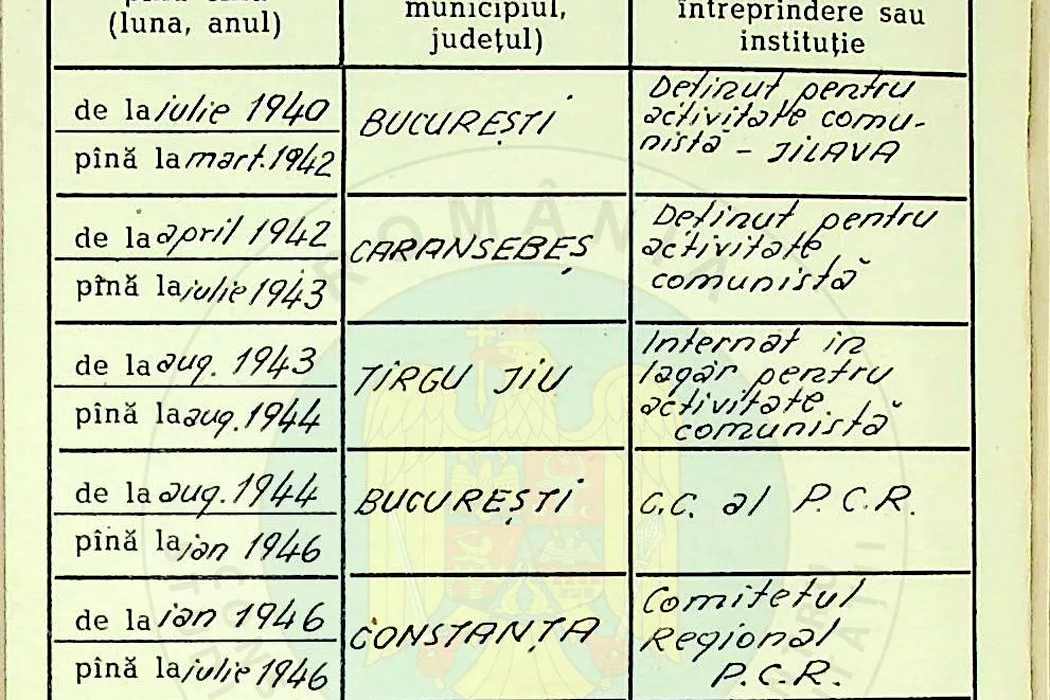 (luna, anul)
municipiul,
județul)
întreprindere sau
instituție
de la iulie 1940
pînă la mart. 1942
BUCUREȘTI
Deținut pentru
activitate comu-
nistă - JILAVA
de la april 1942
pînă la iulie 1943
CARANSEBEȘ
Deținut pentru
activitate
comunistă
de la aug. 1943
pînă la aug. 1944
TÎRGU JIU
Internat în
lagăr pentru
activitate
comunistă
de la aug. 1944
pînă la ian 1946
BUCUREȘTI
C.C. al P.C.R.
de la ian 1946
pînă la iulie 1946
CONSTANȚA
Comitetul
Regional
P.C.R.
ROMÂNIA